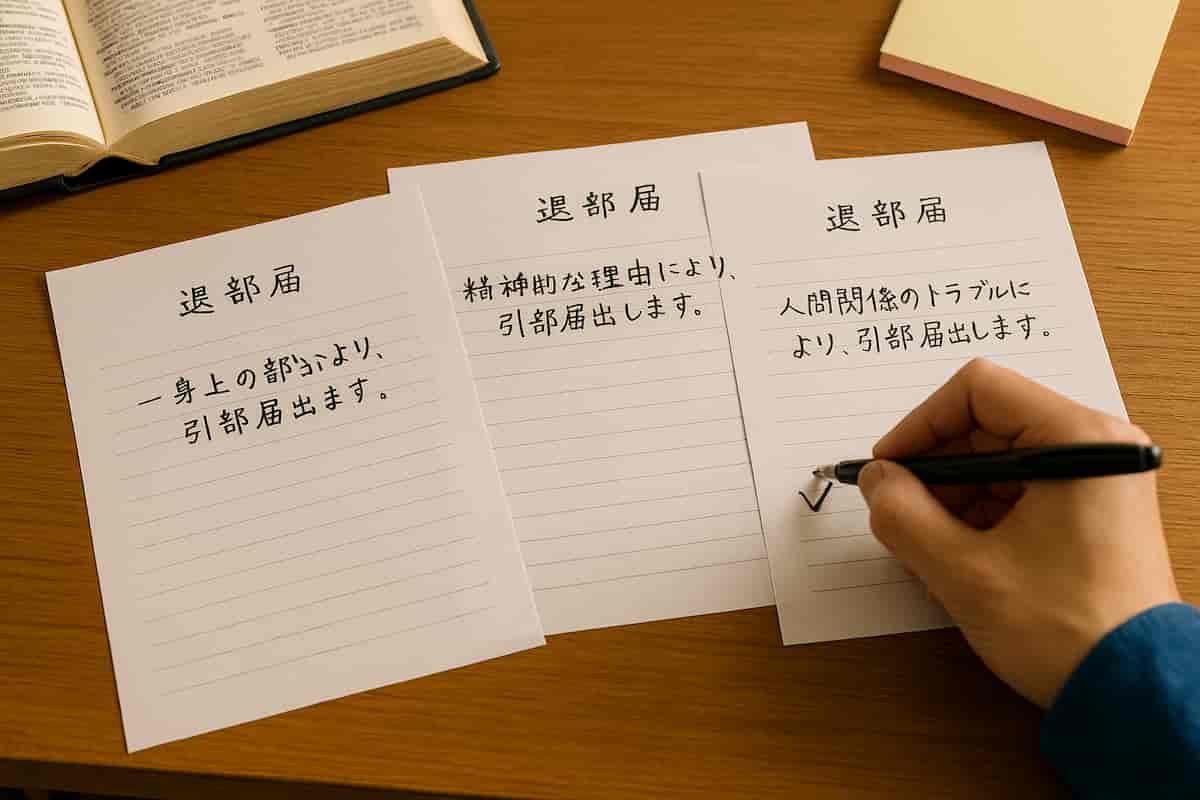 退部届
一身上の部
引部届出ます。
退部届
精神的な理由により、
引部届出します。
退部届
人問関係のトラブルに
より、引部届出します。